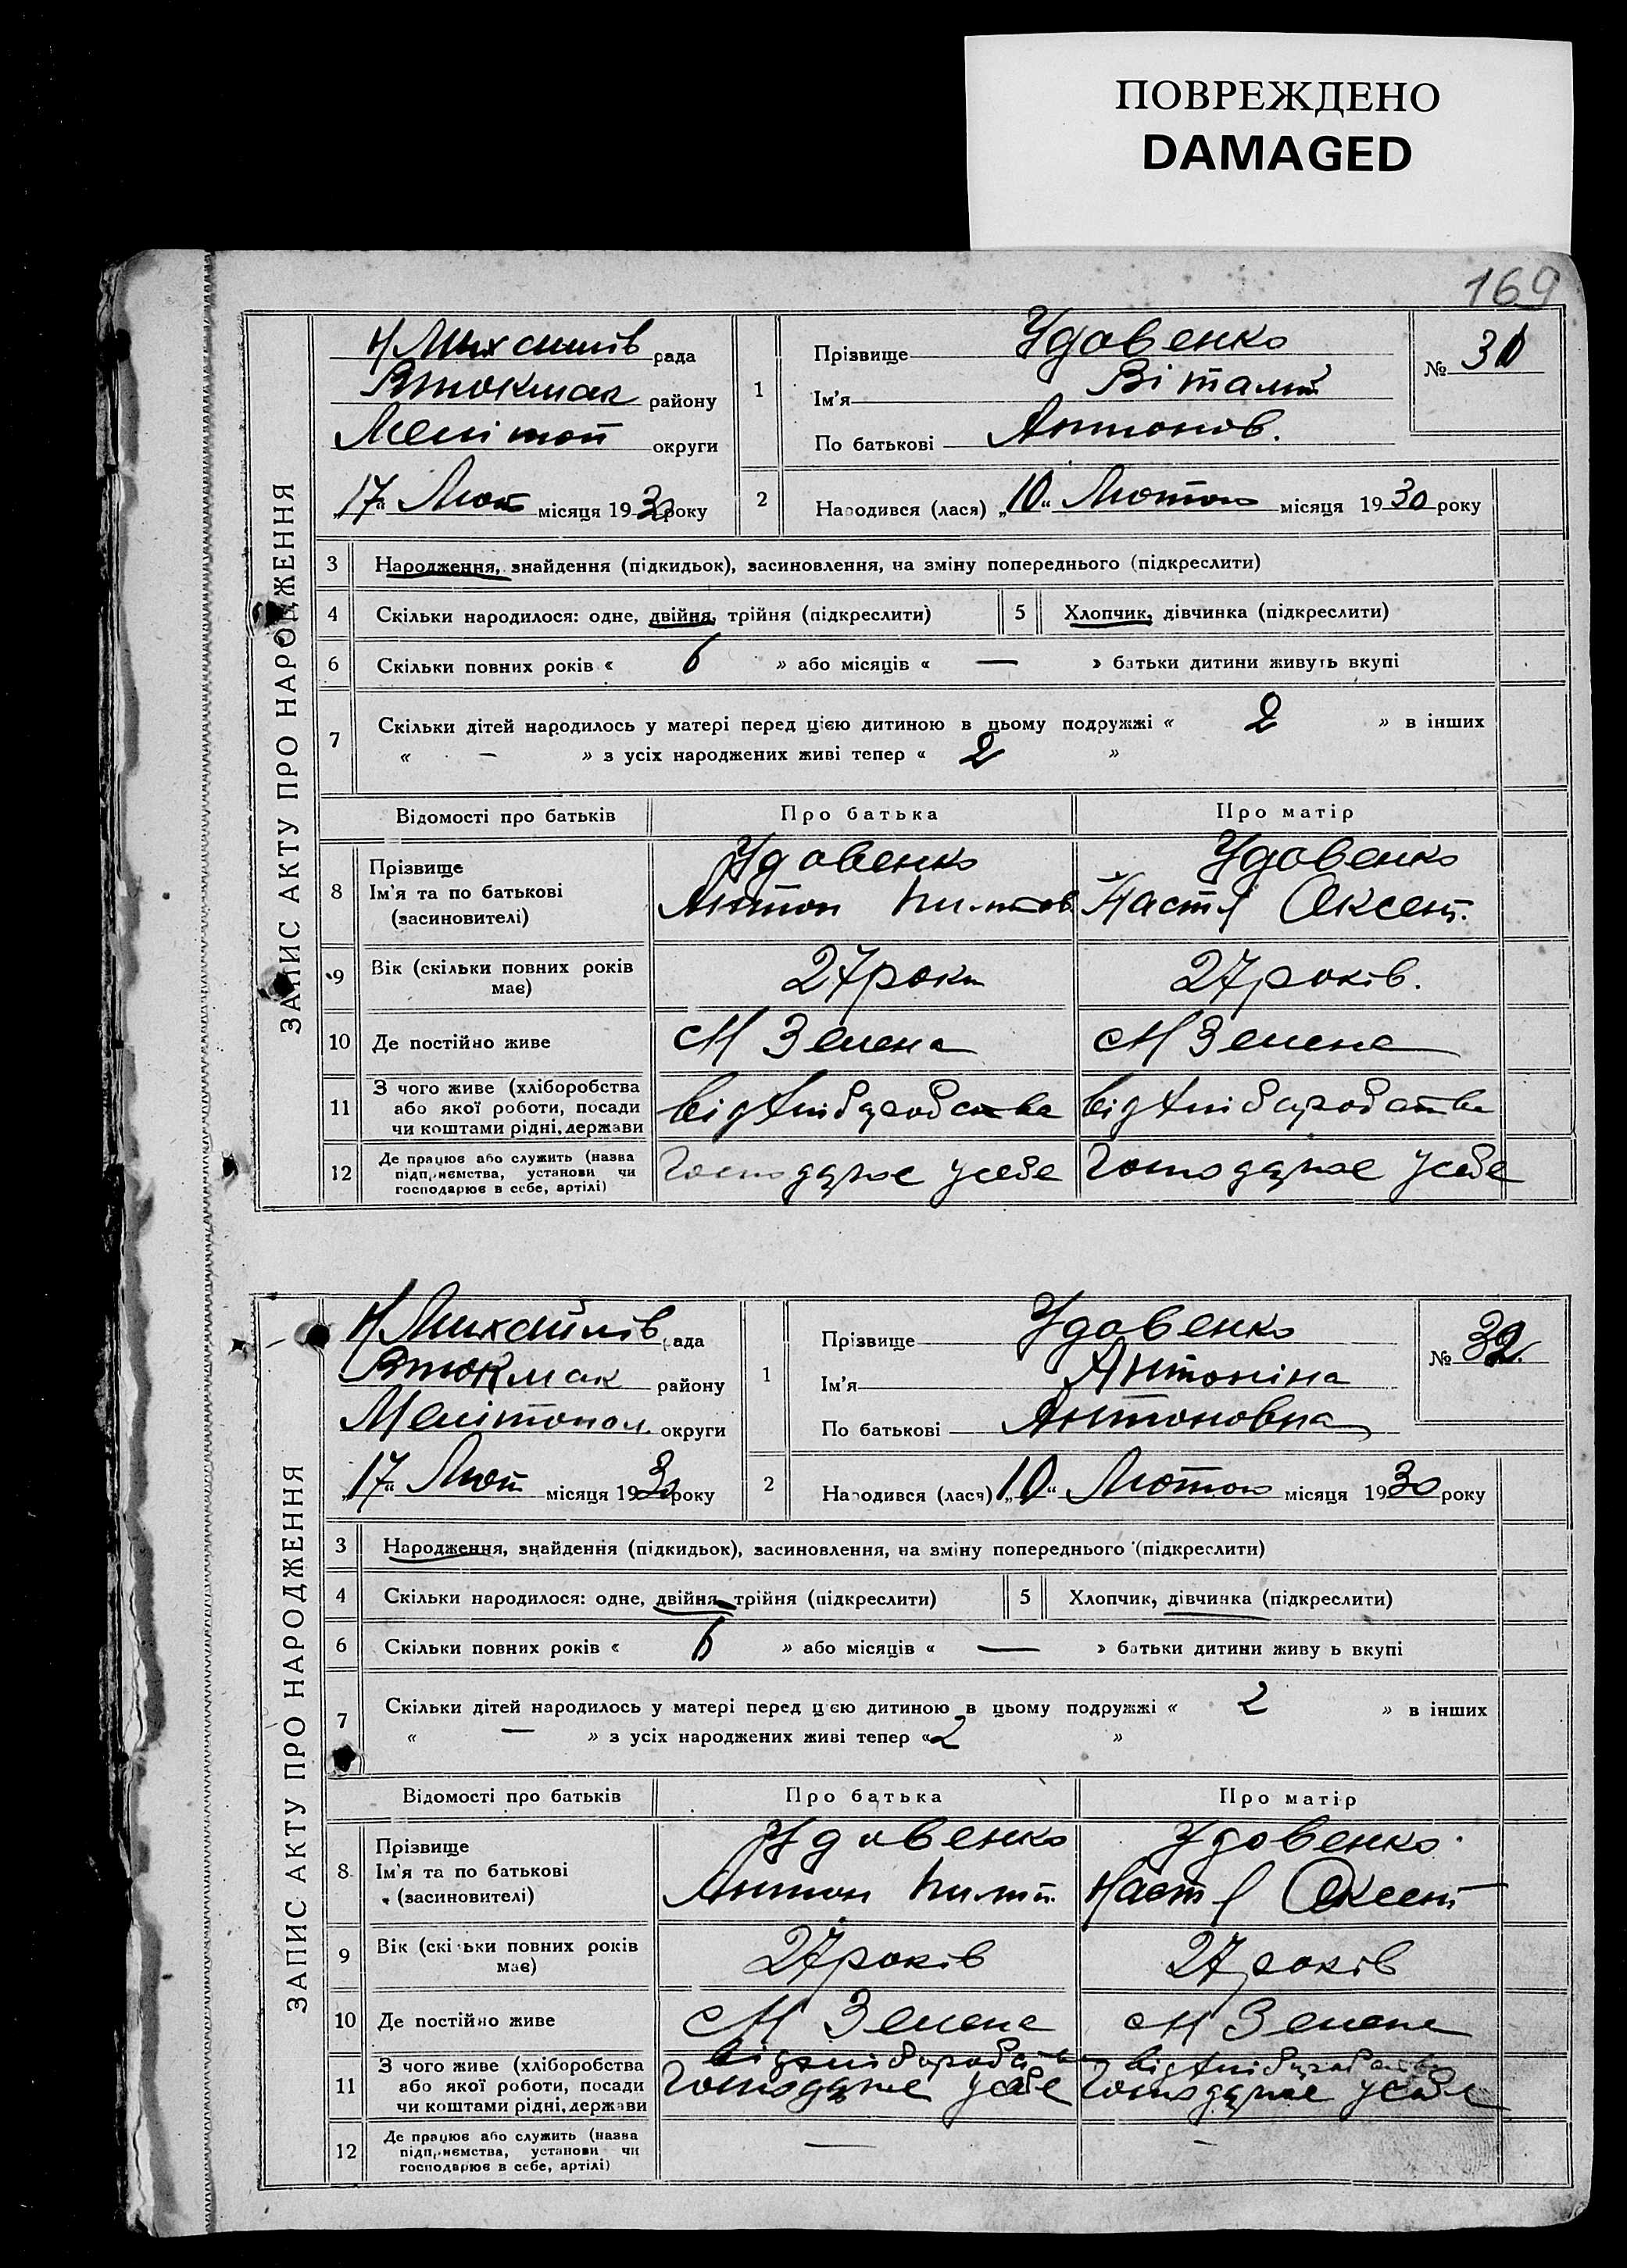 ПОВРЕЖДЕНО
DAMAGED
169
ЗАПИС АКТУ ПРО НАРОДЖЕННЯ
Н Михайлів рада
Втокмак району
Мелітоп округи
„17“ Лют місяця 1930 року
1
Прізвище Удовенко
Ім’я Віталій
По батькові Антонов.
№ 31
2
Народився (лася) „10“ Лютого місяця 1930 року
3 Народження, знайдення (підкидьок), засиновлення, на зміну попереднього (підкреслити)
4 Скільки народилося: одне, двійня, трійня (підкреслити) 5 Хлопчик, дівчинка (підкреслити)
6 Скільки повних років « 6 » або місяців « — » батьки дитини живуть вкупі
7 Скільки дітей народилось у матері перед цією дитиною в цьому подружжі « 2 » в інших
« — » з усіх народжених живі тепер « 2 »
Відомості про батьків Про батька Про матір
8 Прізвище Удовенко Удовенко
Ім’я та по батькові Антон Настя Оксент.
(засиновителі)
9 Вік (скільки повних років має) 27 роки 27 років.
10 Де постійно живе с М Зелена с М Зелена
11 З чого живе (хліборобства
або якої роботи, посади
чи коштами рідні, держави
від хліборобства від хліборобства
12 Де працює або служить (назва
підприємства, установи чи
господарює в себе, артілі)
Господарює у себе Господарює у себе
ЗАПИС АКТУ ПРО НАРОДЖЕННЯ
Н Михайлів рада
Втокмак району
Мелітопол. округи
„17“ Лют місяця 1930 року
1
Прізвище Удовенко
Ім’я Антоніна
По батькові Антоновна
№ 32.
2
Народився (лася) „10“ Лютого місяця 1930 року
3 Народження, знайдення (підкидьок), засиновлення, на зміну попереднього (підкреслити)
4 Скільки народилося: одне, двійня, трійня (підкреслити) 5 Хлопчик, дівчинка (підкреслити)
6 Скільки повних років « 6 » або місяців « — » батьки дитини живу ь вкупі
7 Скільки дітей народилось у матері перед цією дитиною в цьому подружжі « 2 » в інших
« — » з усіх народжених живі тепер « 2 »
Відомості про батьків Про батька Про матір
8 Прізвище Удовенко Удовенко
Ім’я та по батькові Антон Настя Оксент
(засиновителі)
9 Вік (скільки повних років має) 27 років 27 років
10 Де постійно живе с М Зелена с М Зелена
11 З чого живе (хліборобства
або якої роботи, посади
чи коштами рідні, держави
від хліборобства від хліборобства
Господарює у себе Господарює у себе
12 Де працює або служить (назва
підприємства, установи чи
господарює в себе, артілі)
— —